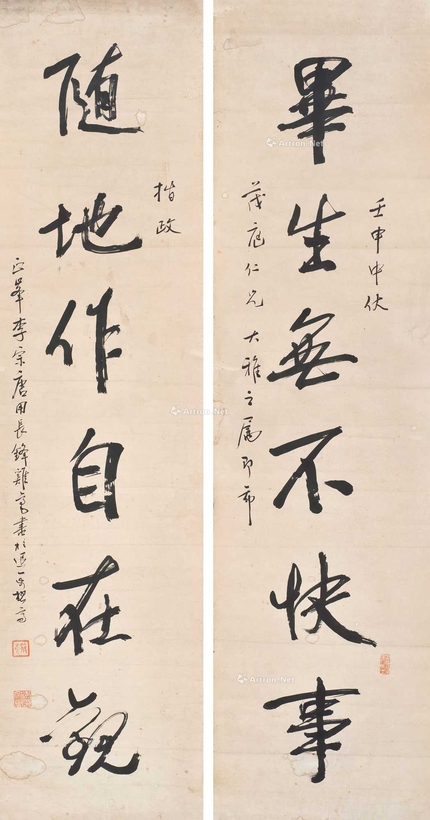 壬申中伏
畢生無不快事
茂庭仁兄大雅之属即希
隨地作自在觀
指政
峯李宗唐用長鋒雞毫書於退一步想齋
Artron.Net
Artron.Net
Artron.Net
Artron.Net